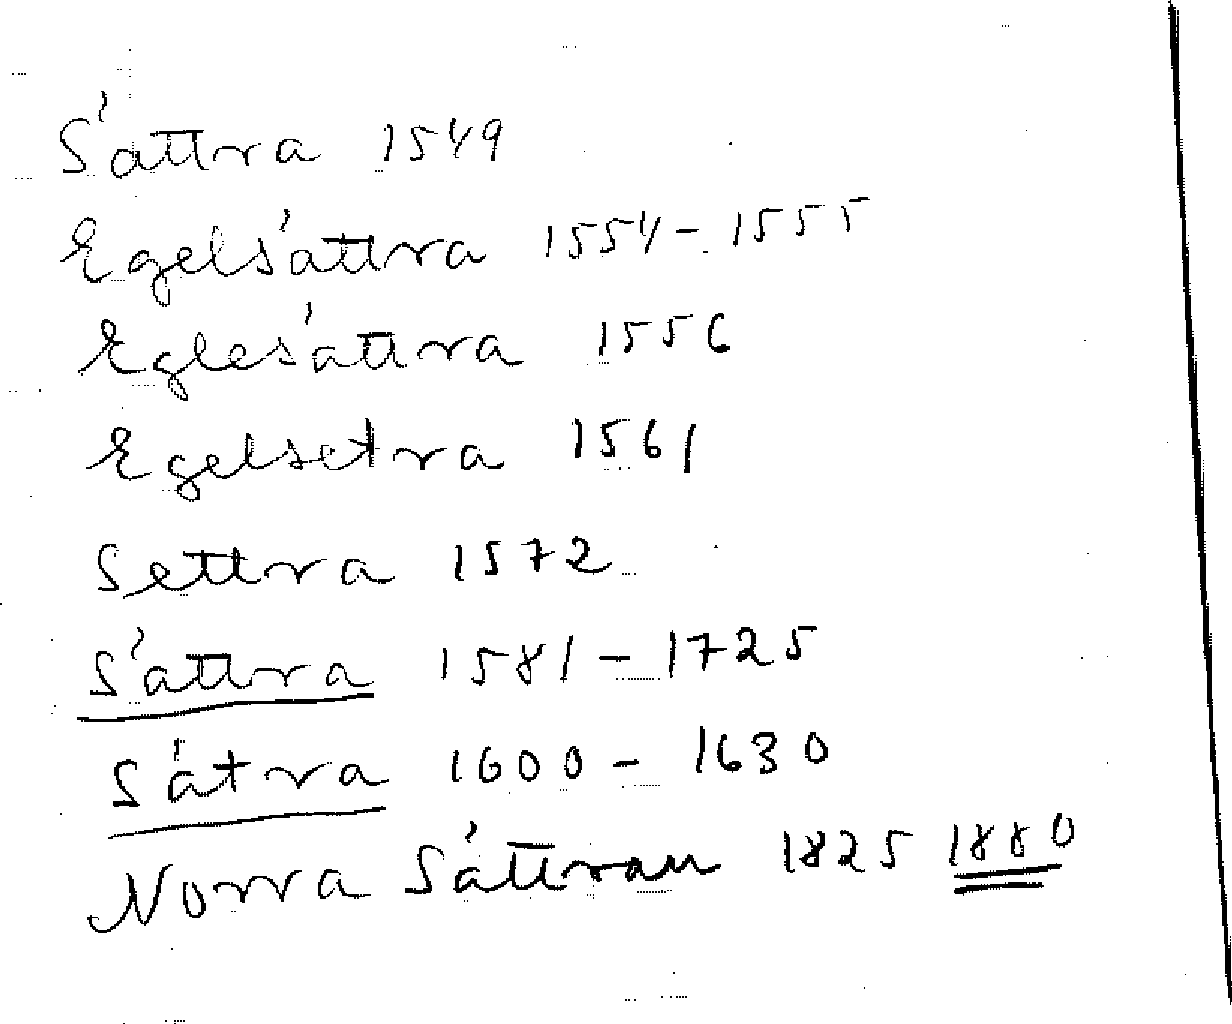 Sättra 1549
Egelsättra 1554-1555
Eglesättra 1556
Egelsetra 1561
Settra 1572
Sättra 1581-1725
Sätra 1600-1630
Norra Sättran 1825 1880